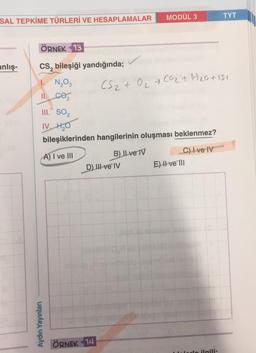 SAL TEPKİME TÜRLERİ VE HESAPLAMALAR
MODÜL 3
TYT
ÖRNEK 13
anlış-
CS₂ bileşiği yandığında;
CS₂ + O₂ → CO₂ + H₂O + ISI
I. N₂O₃
II. CO₂
III. SO₂
IV. H₂O
bileşiklerinden hangilerinin oluşması beklenmez?
A) I ve III
B) II ve IV
C) I ve IV
D) III ve IV
E) II ve III
Aydın Yayınları
ÖRNEK 14
ilgili: